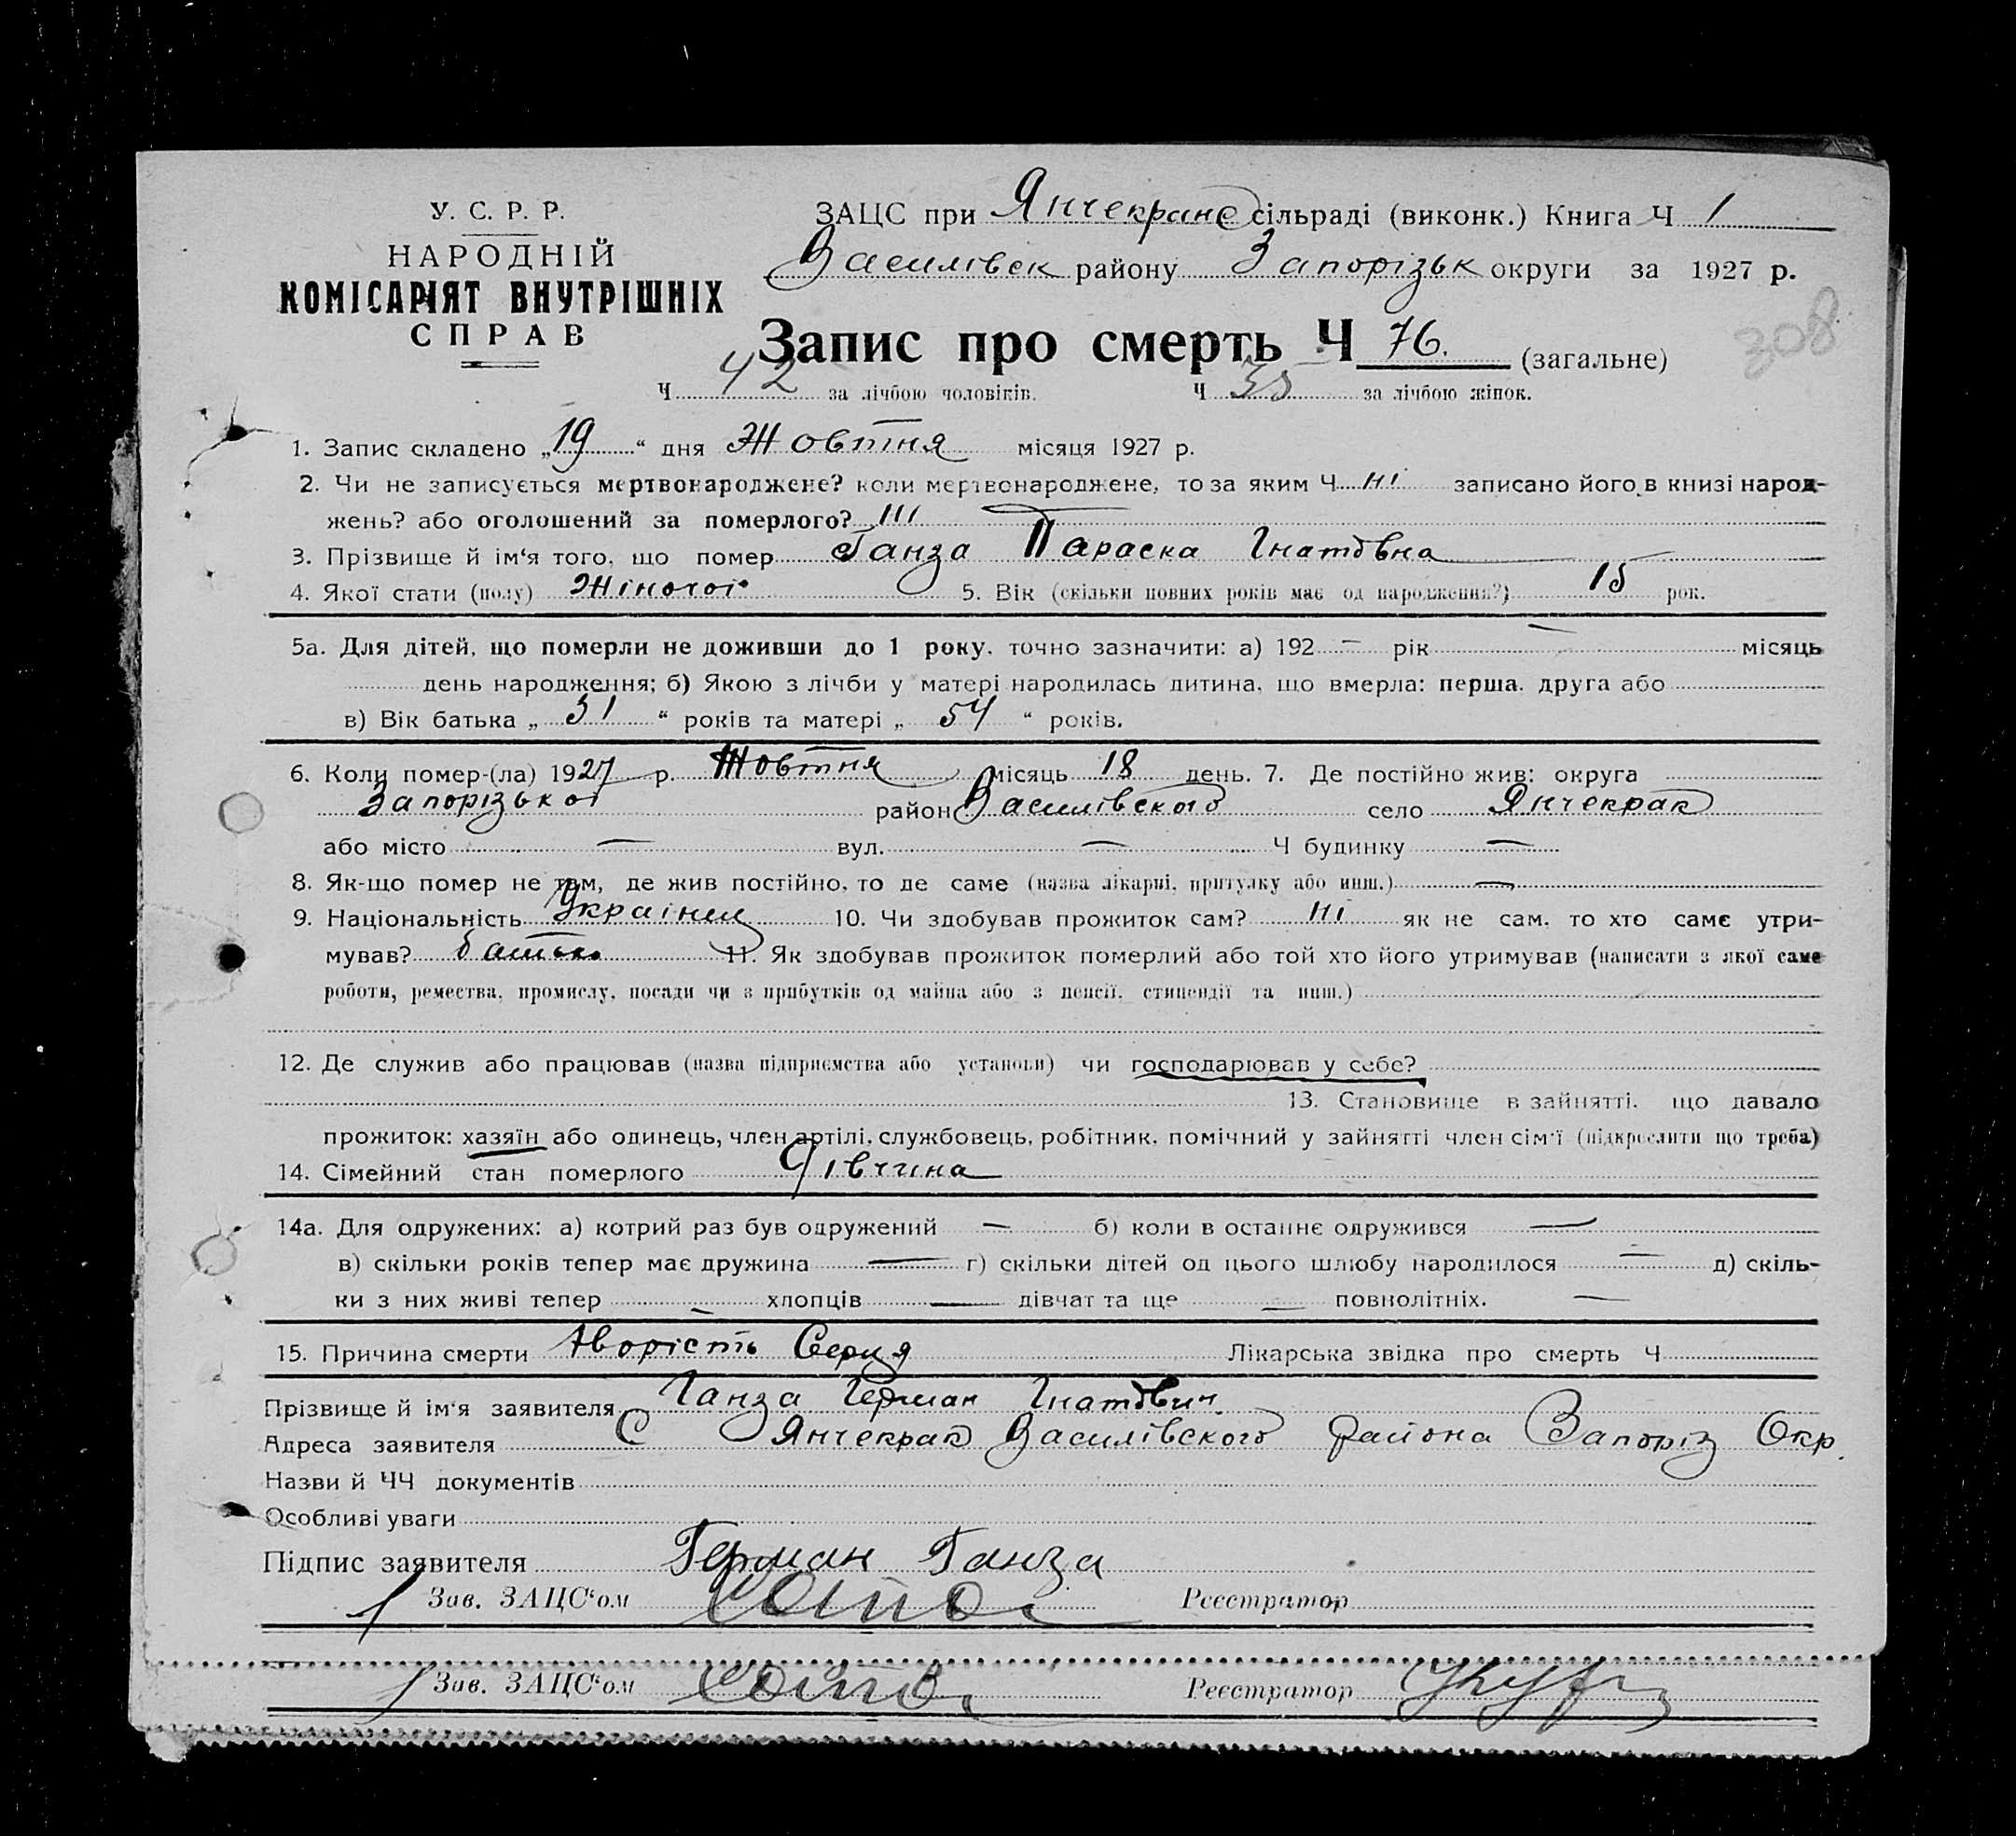 У. С. Р. Р.
НАРОДНІЙ
КОМІСАРІЯТ ВНУТРІШНІХ
СПРАВ
ЗАЦС при Янчекране сільраді (виконк.) Книга Ч 1
Василівск району Запорізьк округи за 1927 р.
308
Запис про смерть Ч 76. (загальне)
Ч 42 за лічбою чоловіків. Ч 35 за лічбою жінок.
1. Запис складено „19“ дня Жовтня місяця 1927 р.
2. Чи не записується мертвонароджене? коли мертвонароджене, то за яким Ч ні записано його в книзі народ-
жень? або оголошений за померлого? ні
3. Прізвище й ім‘я того, що помер Ганза Параска Гнатовна
4. Якої стати (полу) Жіночої 5. Вік (скільки повних років має од народження?) 15 рок.
5а. Для дітей, що померли не доживши до 1 року, точно зазначити: а) 192 — рік — місяць
день народження; б) Якою з лічби у матері народилась дитина, що вмерла: перша, друга або
в) Вік батька „ 51 “ років та матері „ 54 “ років.
6. Коли помер-(ла) 1927 р. Жовтня місяць 18 день. 7. Де постійно жив: округа
Запорізької район Василівского село Янчекрак
або місто — вул. — Ч будинку —
8. Як-що помер не там, де жив постійно, то де саме (назва лікарні, притулку або инш.) —
9. Національність 10. Чи здобував прожиток сам? ні як не сам, то хто саме утри-
мував? батько 11. Як здобував прожиток померлий або той хто його утримував (написати з якої саме
роботи, ремества, промислу, посади чи з прибутків од майна або з пенсії, стипендії та инш.)
12. Де служив або працював (назва підприємства або установи) чи господарював у себе?
13. Становище в зайнятті, що давало
прожиток: хазяїн або одинець, член артілі, службовець, робітник, помічний у зайнятті член сім‘ї (підкреслити що треба)
14. Сімейний стан померлого Дівчина
14а. Для одружених: а) котрий раз був одружений — б) коли в останнє одружився —
в) скільки років тепер має дружина — г) скільки дітей од цього шлюбу народилося — д) скіль-
ки з них живі тепер — хлопців — дівчат та ще — повнолітніх. —
15. Причина смерти Хворість Серця Лікарська звідка про смерть Ч
Прізвище й ім‘я заявителя Ганза Герман Гнатович
Адреса заявителя С Янчекрак Василівского района Запоріз Окр.
Назви й ЧЧ документів
Особливі уваги
Підпис заявителя Герман Ганза
Зав. ЗАЦС‘ом Реєстратор
Зав. ЗАЦС‘ом Реєстратор